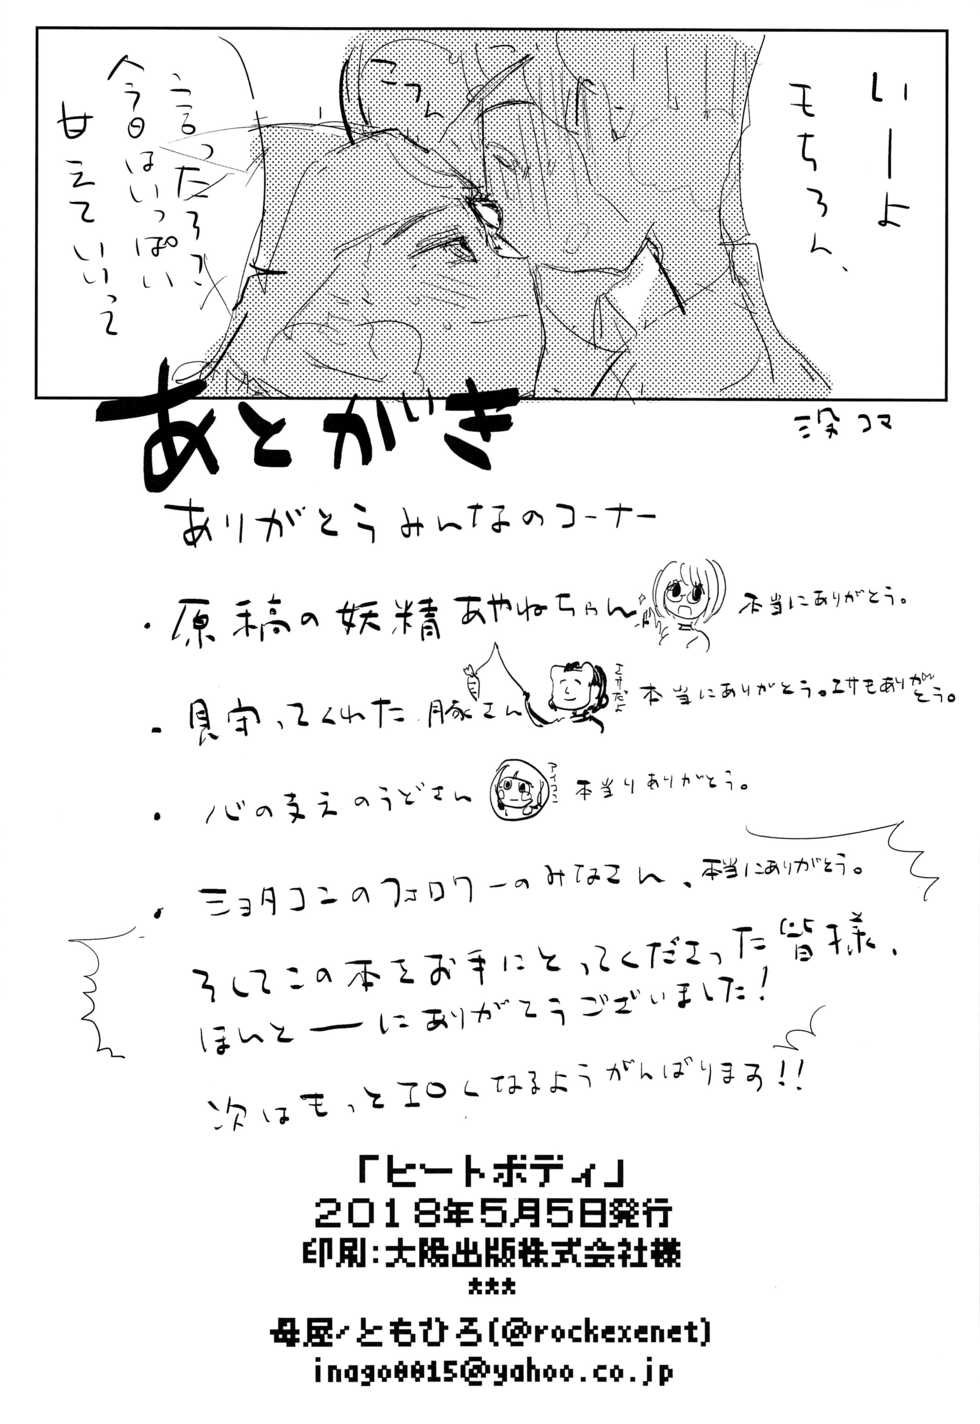 いーよ
モちろん、
こつん
言ったろ?
今日はいっぱい
甘えていいって
あとがき
没コマ
ありがとうみんなのコーナー
・原稿の妖精あやねちゃん 本当にありがとう。
・見守ってくれた豚さん エサだよ 本当にありがとう。エサもありがとう。
・心の支えのうどさん アイコン 本当りありがとう。
・ショタコンのフォロワーのみなさん、本当にありがとう。
そしてこの本をお手にとってくださった皆様、
ほんとーーにありがとうございました!
次はもっとエロくなるようがんばります!!
「ヒートボディ」
2018年5月5日発行
印刷:大陽出版株式会社様
***
母屋/ともひろ(@rockexenet)
inago0015@yahoo.co.jp